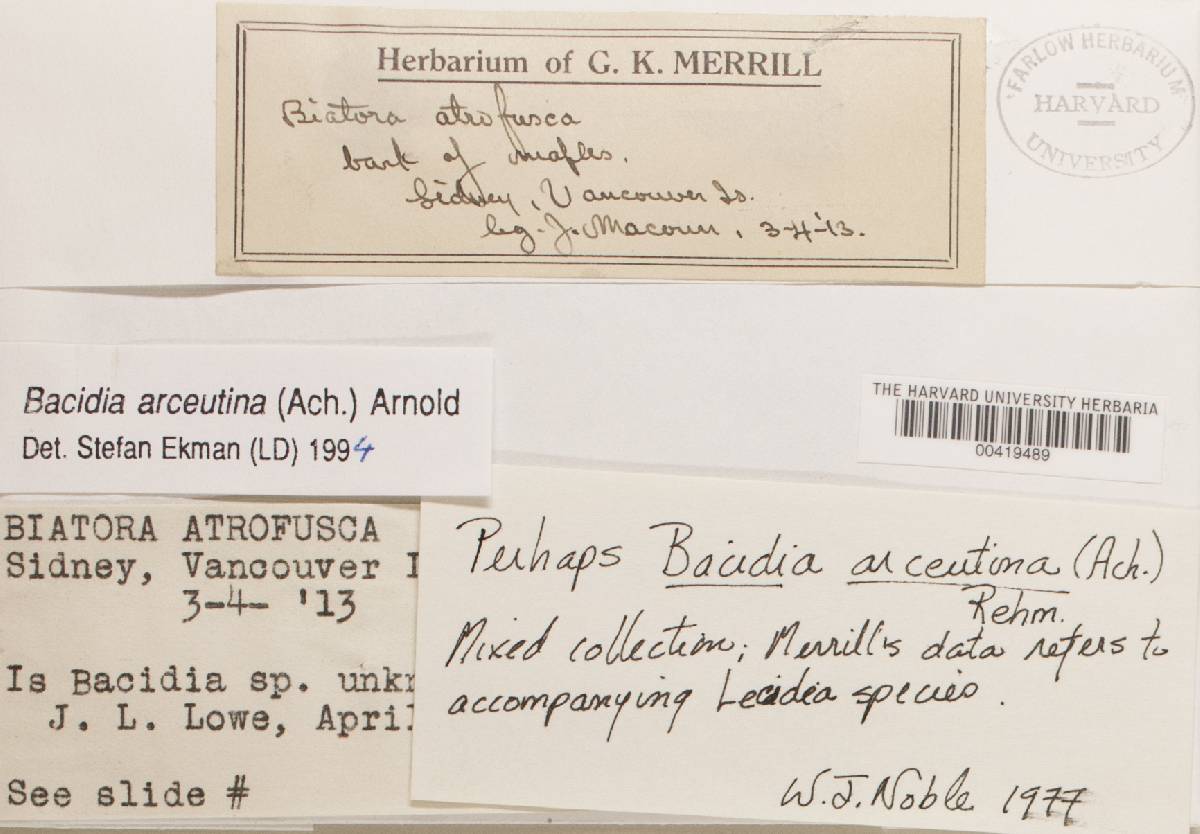 Herbarium of G. K. MERRILL
Biatora atrofusca
bark of maples.
Sidney, Vancouver Is.
leg. J. Macoun, 3-4-'13.
FARLOW HERBARIUM
HARVARD
UNIVERSITY
Bacidia arceutina (Ach.) Arnold
Det. Stefan Ekman (LD) 1994
THE HARVARD UNIVERSITY HERBARIA
00419489
BIATORA ATROFUSCA
Sidney, Vancouver I
3-4- '13
Is Bacidia sp. unkr
J. L. Lowe, April
See slide #
Perhaps Bacidia arceutina (Ach.)
Rehm.
Mixed collection; Merrill's data refers to
accompanying Lecidea species.
W.J. Noble 1977